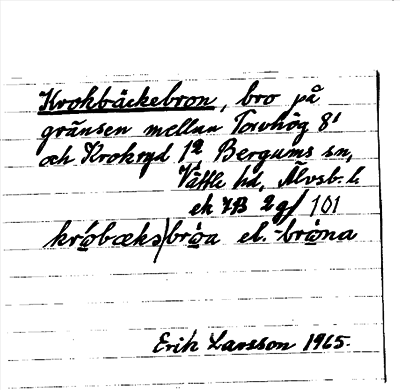 Krokbäckebron, bro på
gränsen mellan Torvhög 8¹
och Krokryd 1² Bergums sn,
Vättle hd, Älvsb. l.
ek 7B 2g/101
krȯbæks|brȯa el. -brȯna
Erik Larsson 1965.